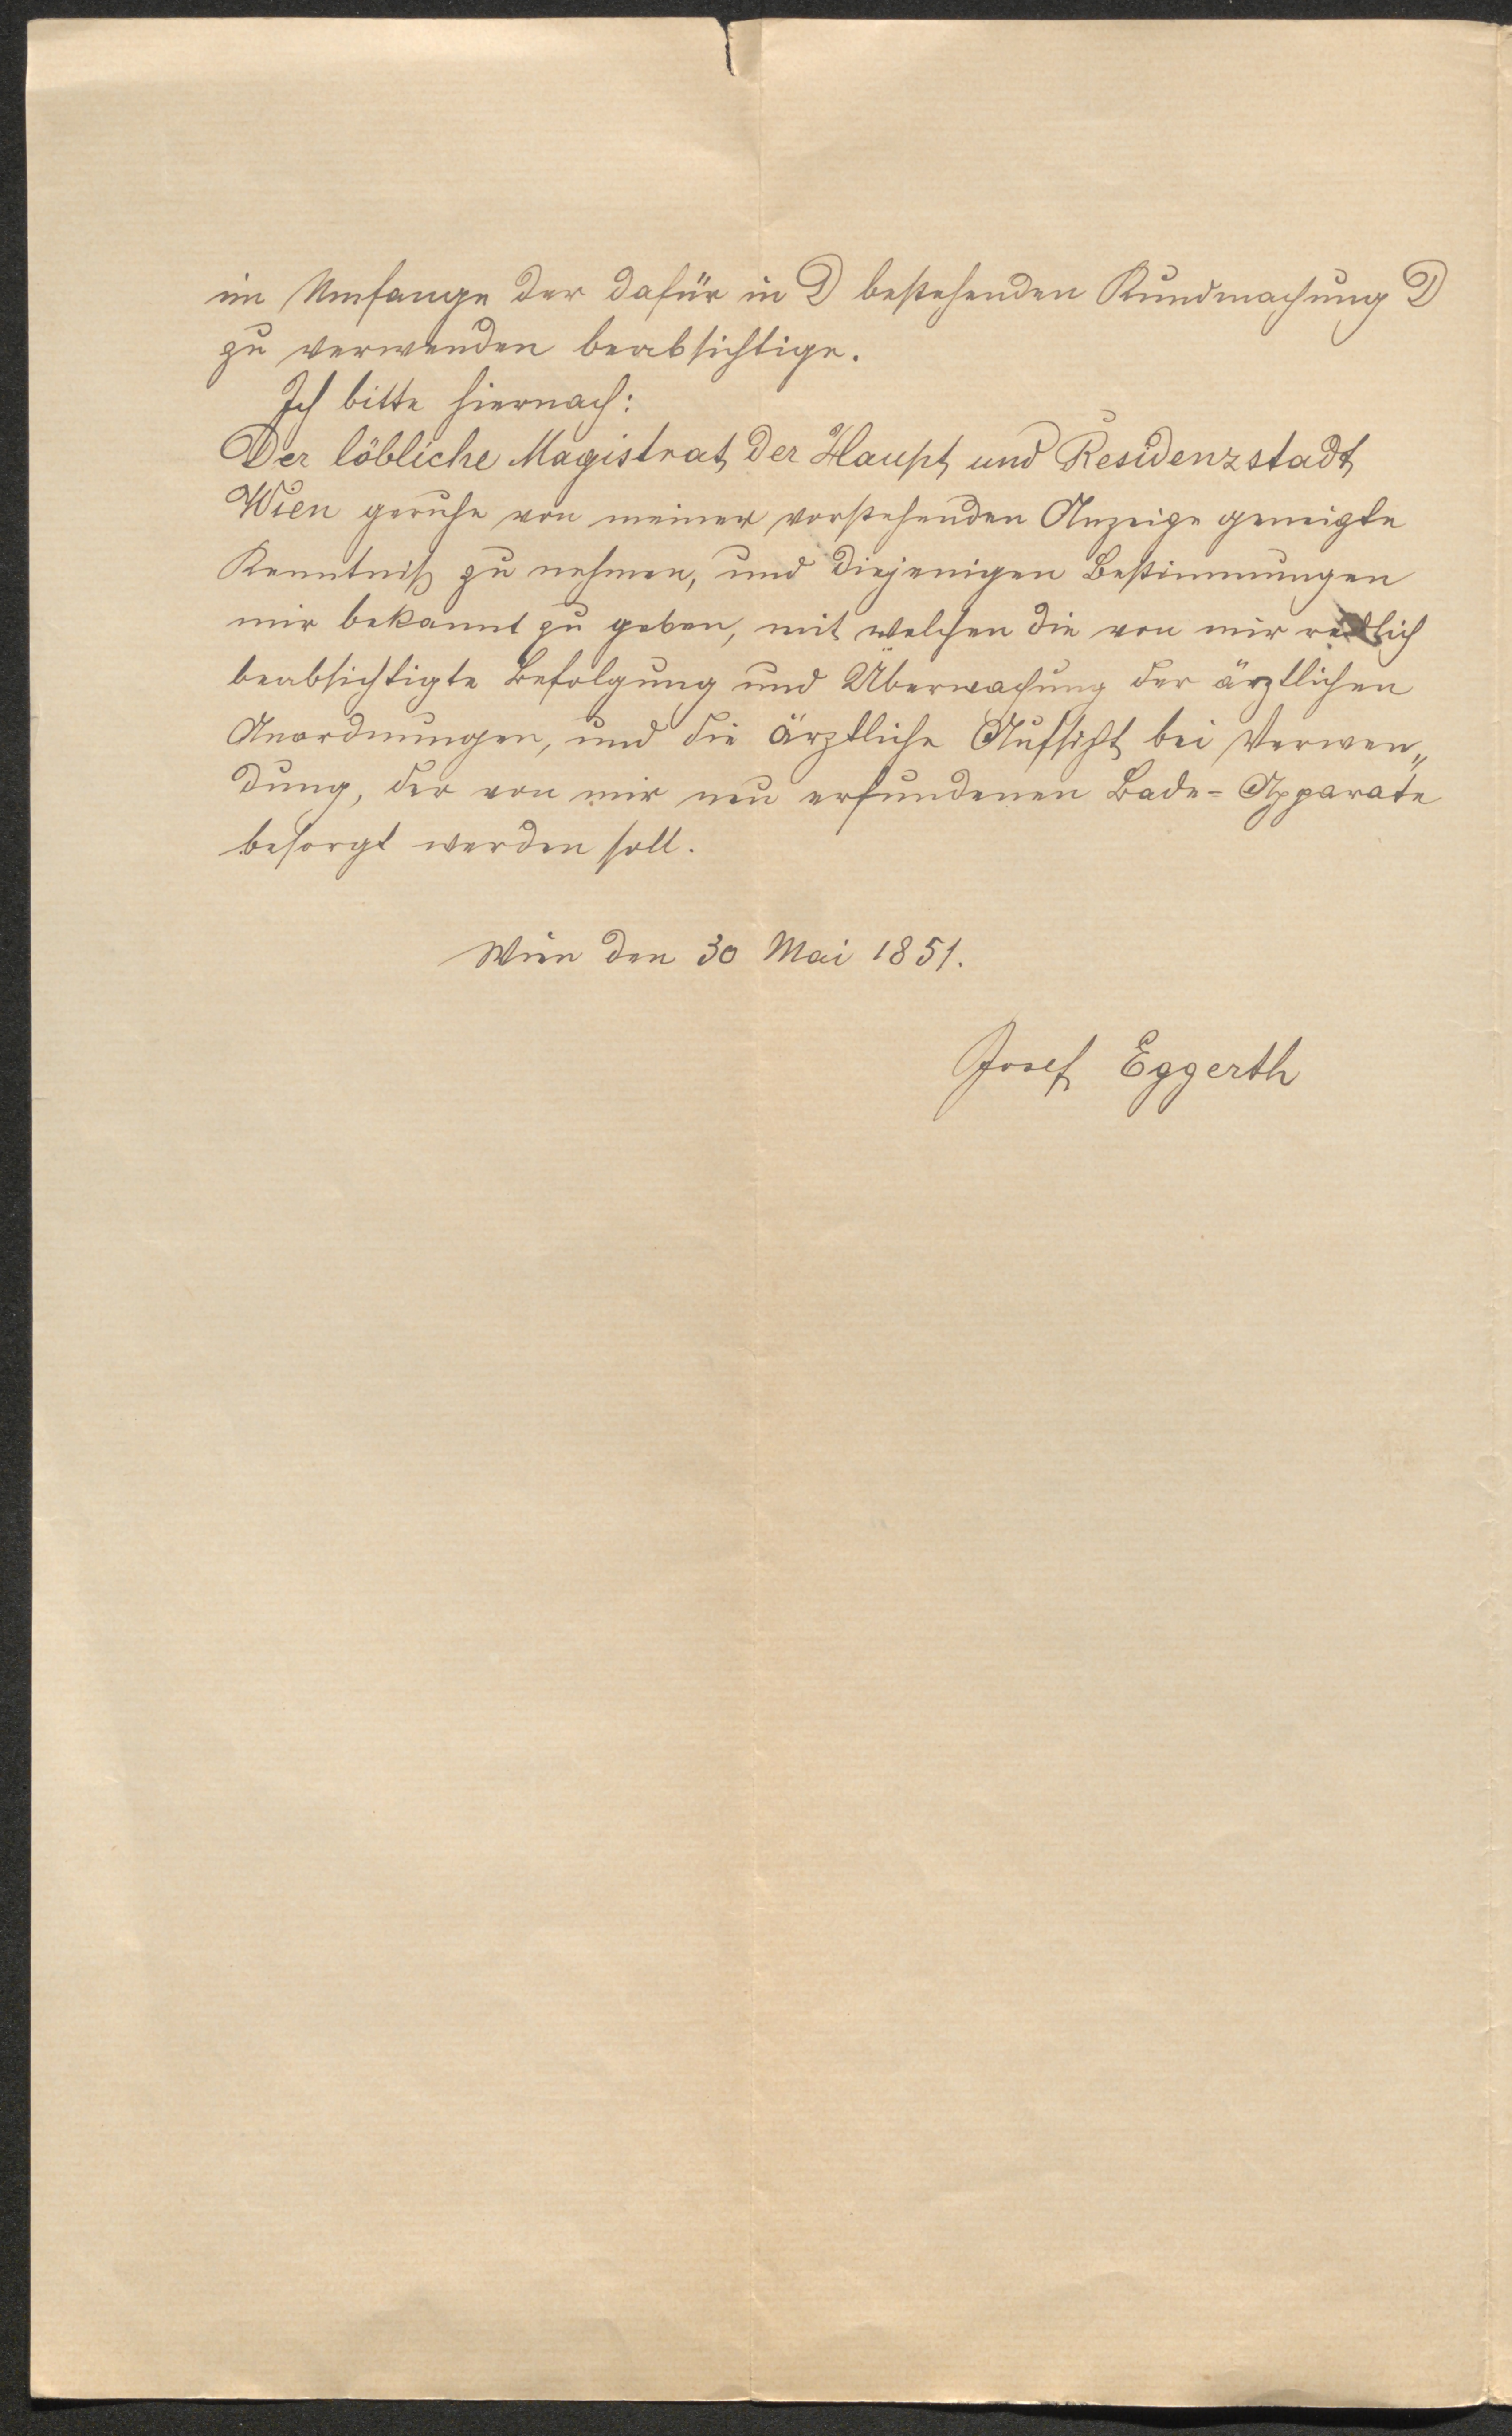 im Umfange der dafür in D bestehenden Kundmachung D
zu verwenden beabsichtige.
Ich bitte hiernach:
Der löbliche Magistrat der Haupt und Residenzstadt
Wien geruhe von meiner vorstehenden Anzeige geneigte
Kenntniß zu nehmen, und diejenigen Bestimmungen
mir bekannt zu geben, mit welchen die von mir redlich
beabsichtigte Befolgung und Überwachung der ärztlichen
Anordnungen, und die ärztliche Aufsicht bei Verwen„
dung, der von mir neu erfundenen Bade-Apparate
besorgt werden soll.
Wien den 30 Mai 1851.
Josef Eggerth